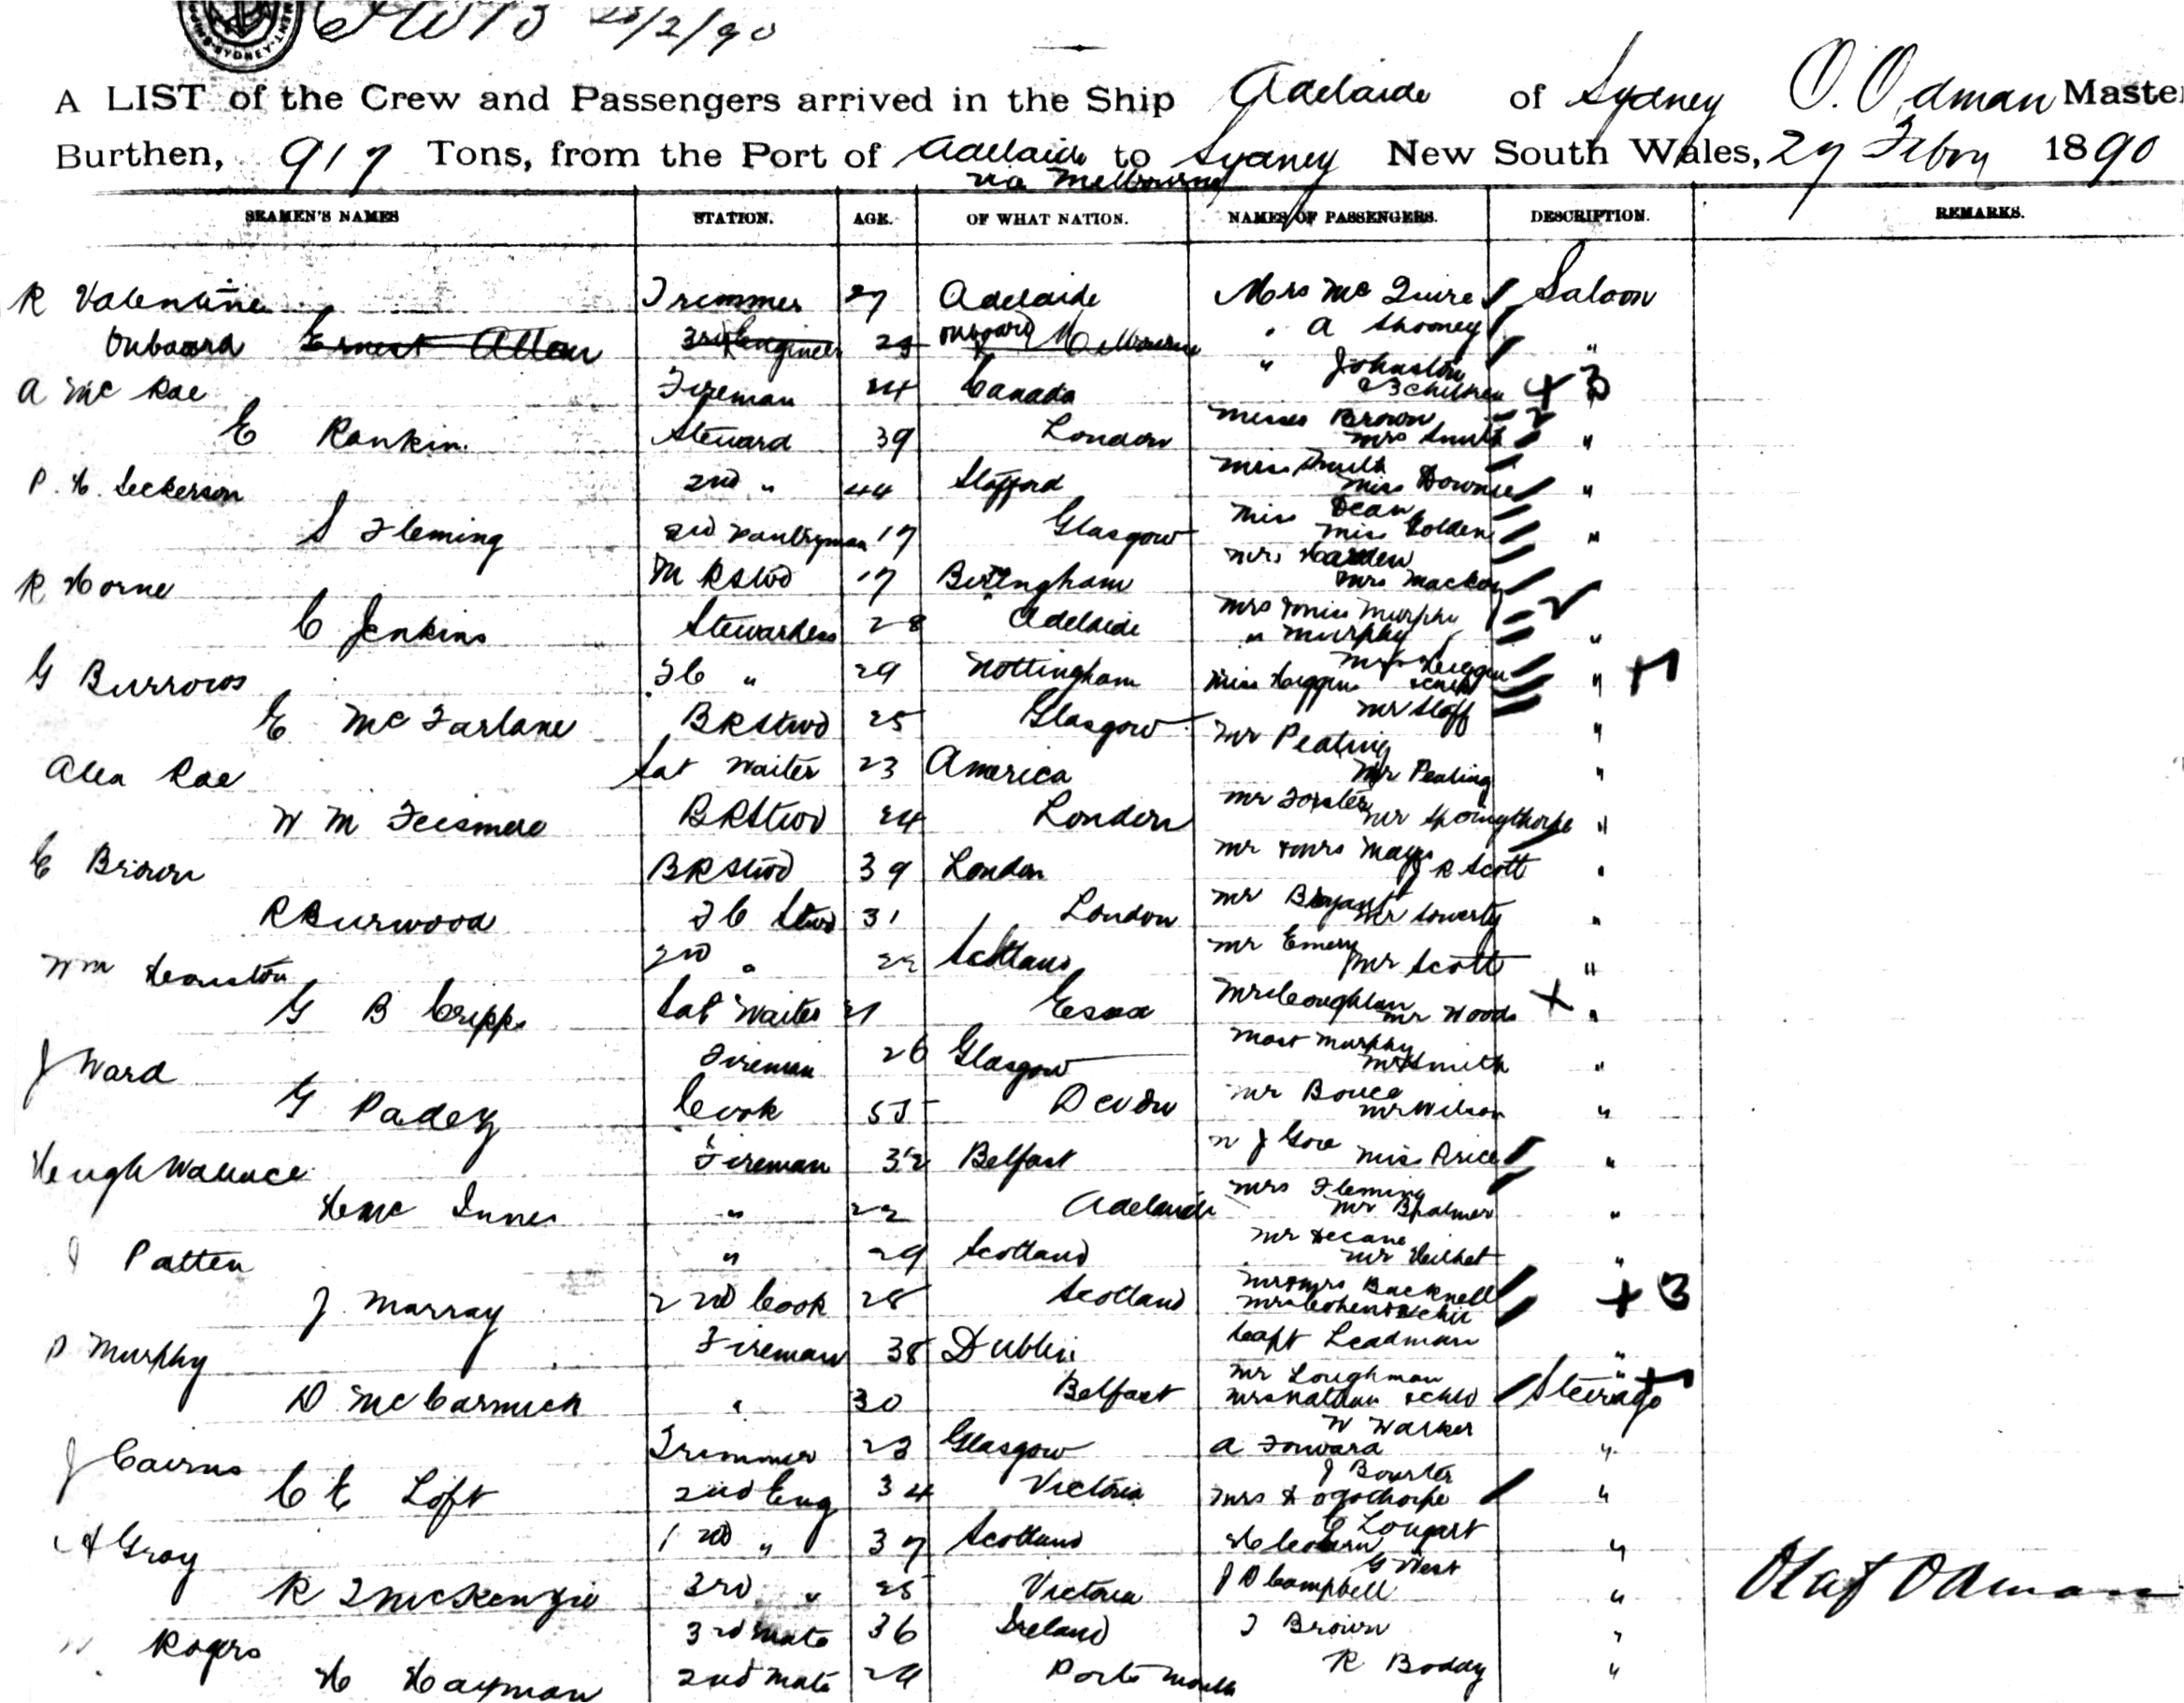 25/2/90
A LIST of the Crew and Passengers arrived in the Ship Adelaide of Sydney O. Odman Master
Burthen, 917 Tons, from the Port of Adelaide to Sydney New South Wales, 27 Febry 1890
via Melbourne
SEAMEN'S NAMES STATION. AGE. OF WHAT NATION. NAMES OF PASSENGERS. DESCRIPTION. REMARKS.
R Valentine Trimmer 27 Adelaide Mrs Mc Quire Saloon
Onboard Ernest Allen 3rd Engineer 23 onboard Melbourne " A Shooney "
A Mc Rae Fireman 24 Canada " Johnston & 3 children + 3
E Rankin Steward 39 London Misses Brown 2 Mrs Smith "
P. H. Seckerson 2nd " 44 Stafford Miss Smith Miss Downie "
S Fleming 2nd Pantryman 17 Glasgow Miss Dean Miss Golden "
R Horne M R Stwd 17 Mrs Harden Mrs Mackay
C Jenkins Stewardess 28 Adelaide Mrs & Miss Murphy 2 " Murphy "
G Burrows F C " 29 Nottingham Miss Higgins & child " + 1
E McFarlane B R Stwd 25 Glasgow Mr Sloff "
Alex Rae Sal Waiter 23 America Mr Pealing Mr Pealing "
W M B R Stwd 24 London Mr Forster Mr Springthorpe "
C Brown B R Stwd 39 London Mr & Mrs Mays J R Scott "
R Burwood F C Stwd 31 London Mr Bryant Mr Sowerty "
Wm Houston 2nd " 22 Scotland Mr Emery Mr Scott "
G B Cripps Sal Waiter 21 Essex Mr Coughlan Mr Woods + "
J Ward Fireman 26 Glasgow Mast Murphy Mr Smith "
G Padey Cook 55 Devon Mr Bouce Mr Wilson "
Hugh Wallace Fireman 32 Belfast W J Gow Miss Price "
H Mc Innes " 22 Adelaide Mrs Fleming Mr B Palmer "
J Patten " 29 Scotland Mr Decane Mr "
J. Murray 2nd Cook 28 Scotland Mr & Mrs Bucknell Mrs Cohen & child + 3
P Murphy Fireman 38 Dublin Capt Leadman "
D McCarmick " 30 Belfast Mr Loughman " Mrs Nathan & child Steerage + 1
J Cairns Trimmer 23 Glasgow W Warker A Forward "
C E Loft 2nd Eng 34 Victoria J Bourter Mrs "
A Gray 1 " 37 Scotland C "
R J McKenzie 3rd " 25 Victoria G West J D Campbell " Olaf Odman
Rogers 3rd Mate 36 Ireland J Brown "
H Hayman 2nd Mate 29 Portsmouth R Boddy "